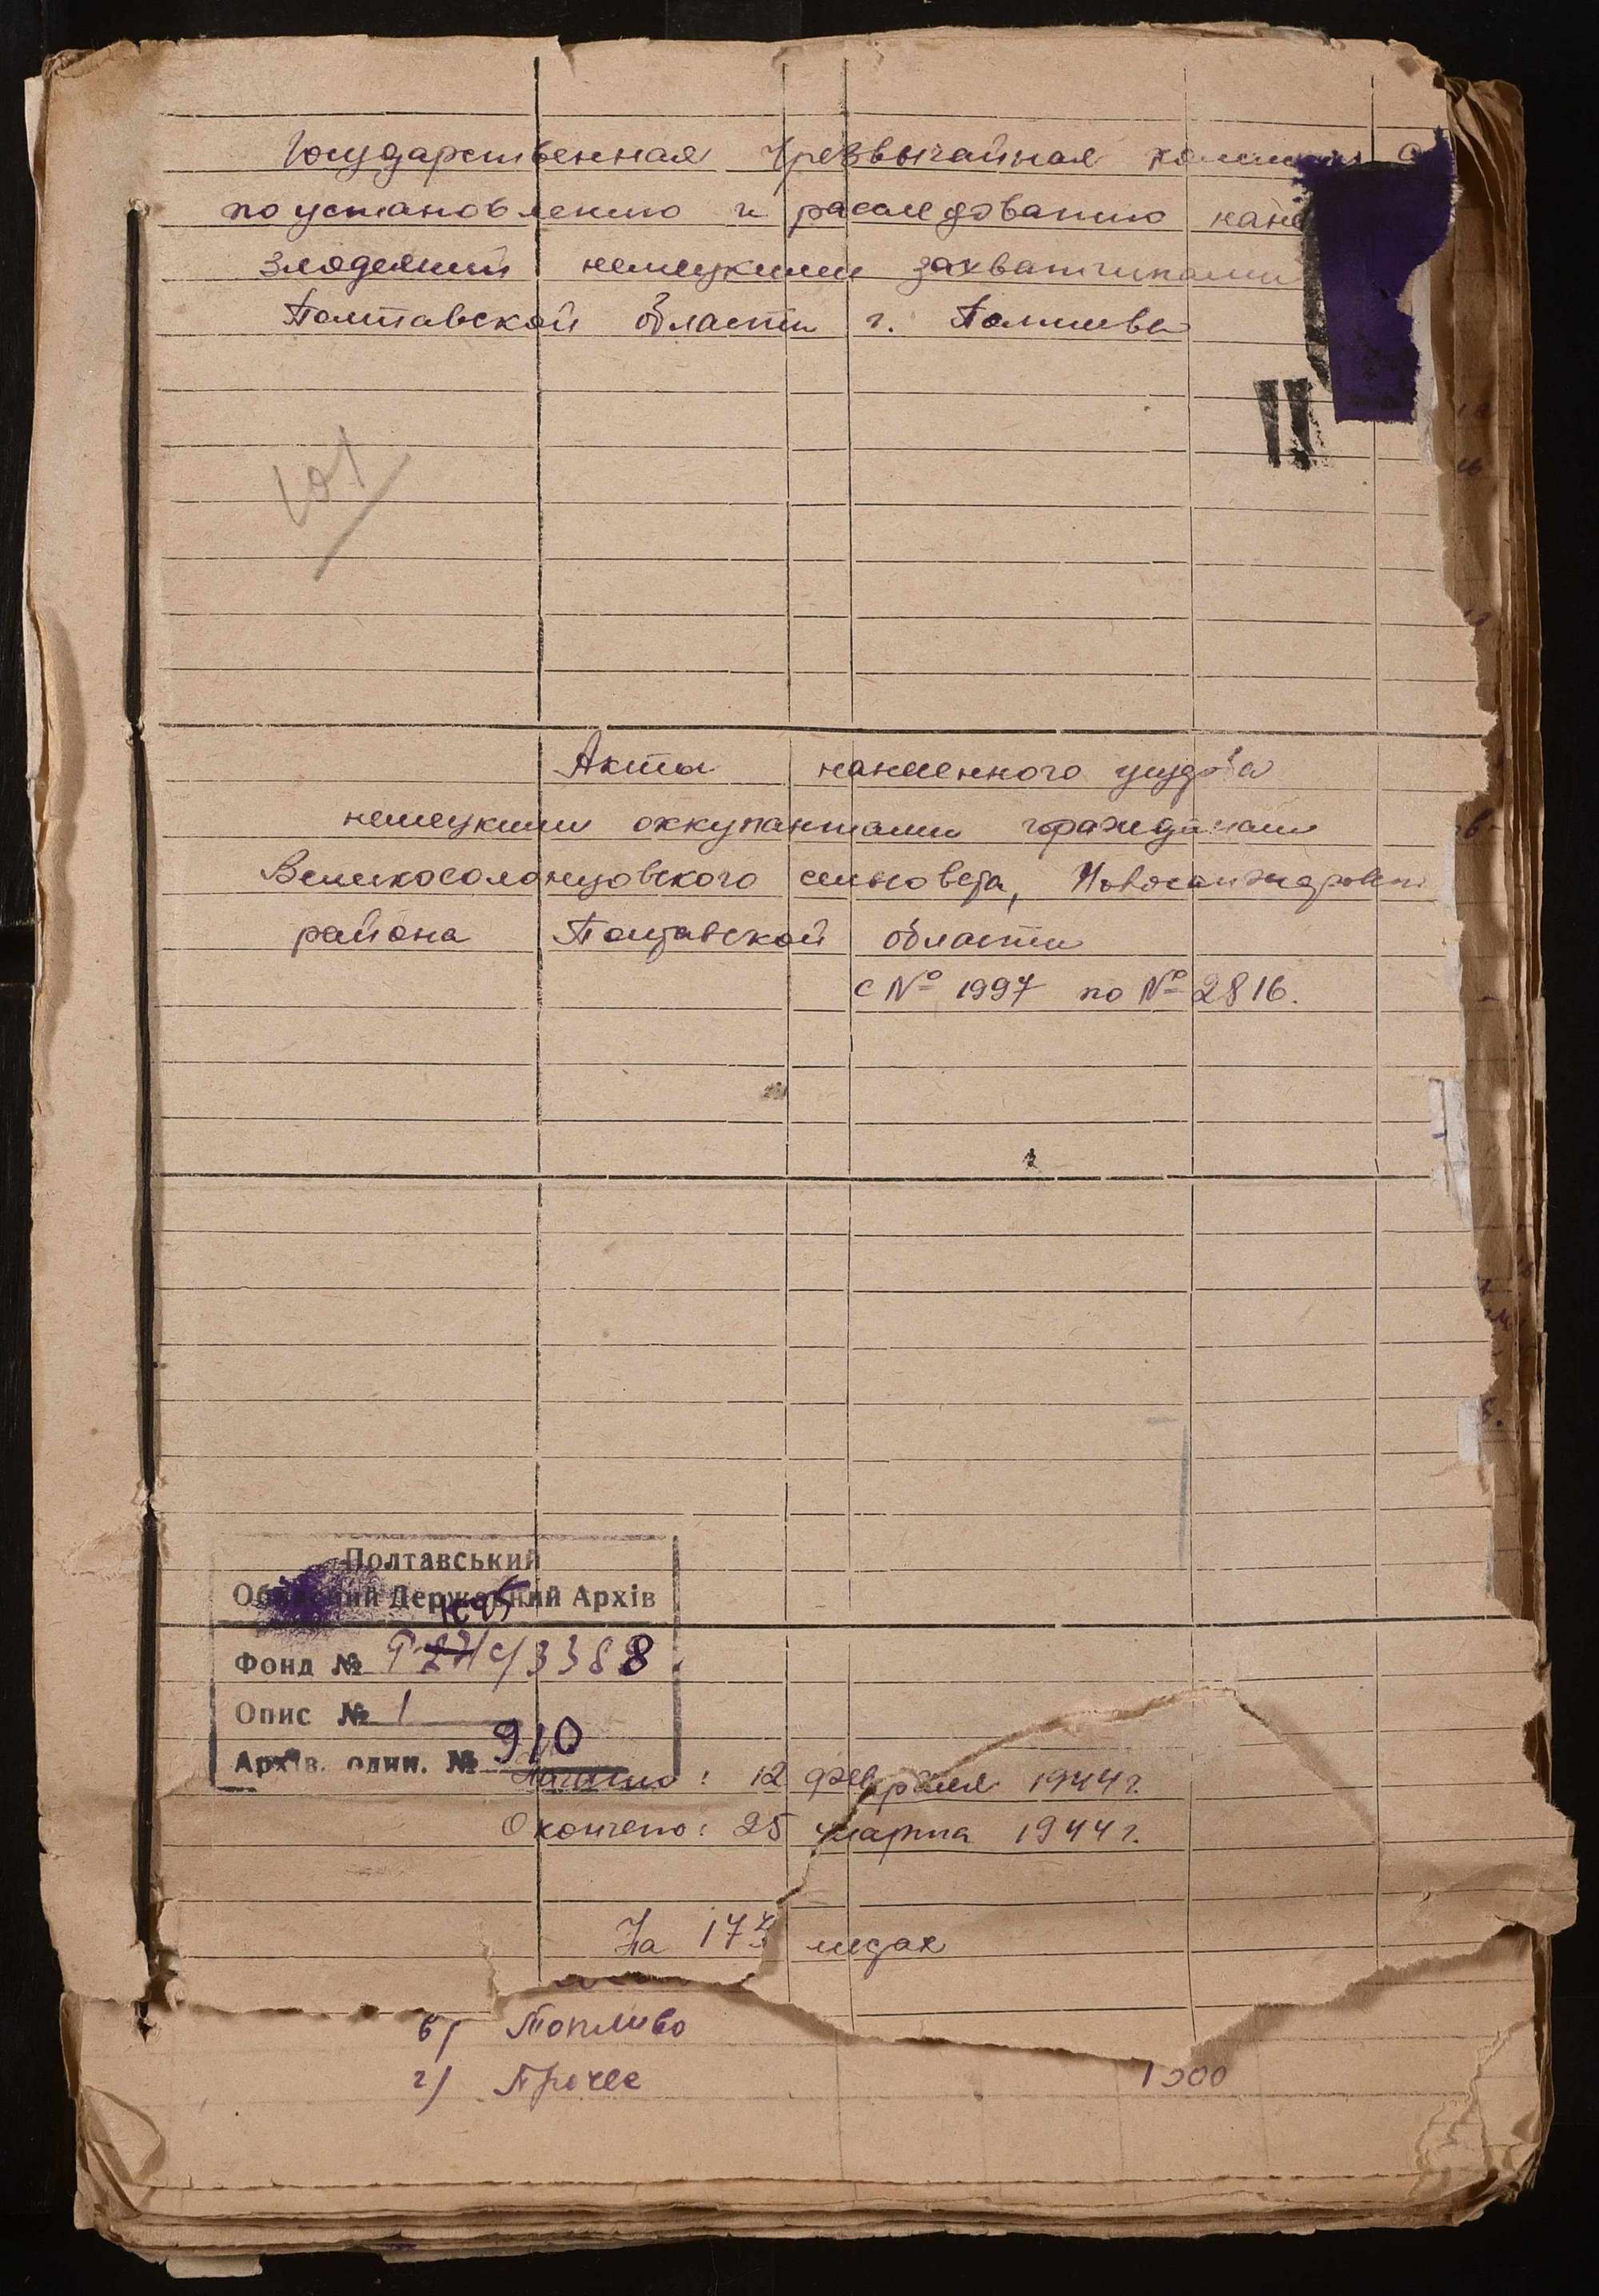 Государственная Чрезвычайная комиссия
по установлению и расследованию
злодеяний немецкими захватчиками
Полтавской области г. Полтава
101
Акты нанесенного ущерба
немецкими оккупантами гражданам
Великосолонцовского сельсовета, Новосанжаровск
района Полтавской области
с № 1997 по № 2816.
Полтавський
Обласний Державний Архів
Фонд № 3388
Опис № 1
Архів. один. № 910
Начато: 12 февраля 1944 г.
Окончено: 25 марта 1944 г.
На листах
в) Топливо
г) Прочее 1500